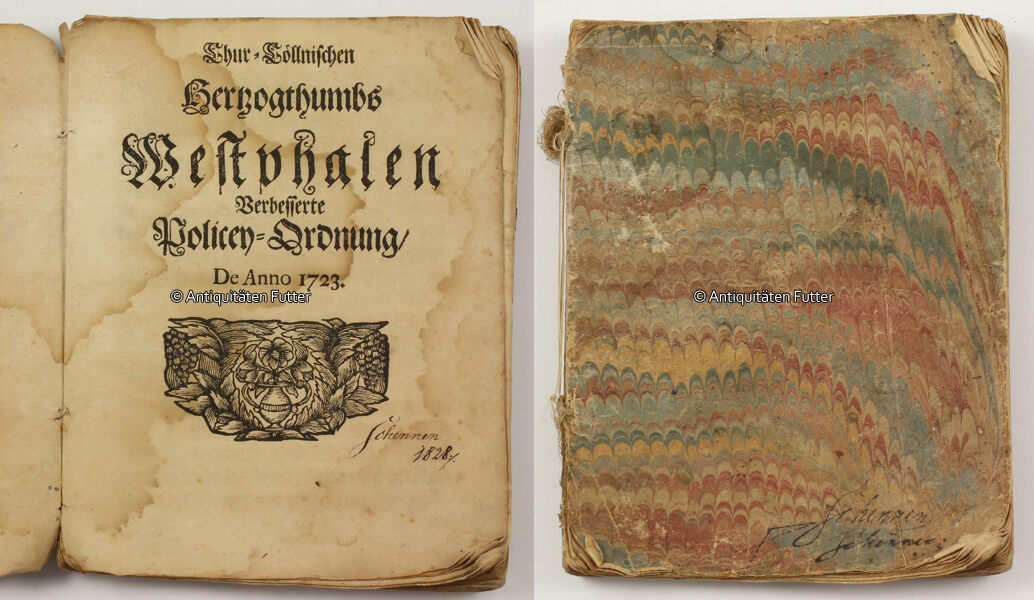 Chur-Cöllnischen
Hertzogthumbs
Westphalen
Verbesserte
Policey-Ordnung/
De Anno 1723.
© Antiquitäten Futter
Schennen
1828.
© Antiquitäten Futter
Schennen
Schennen